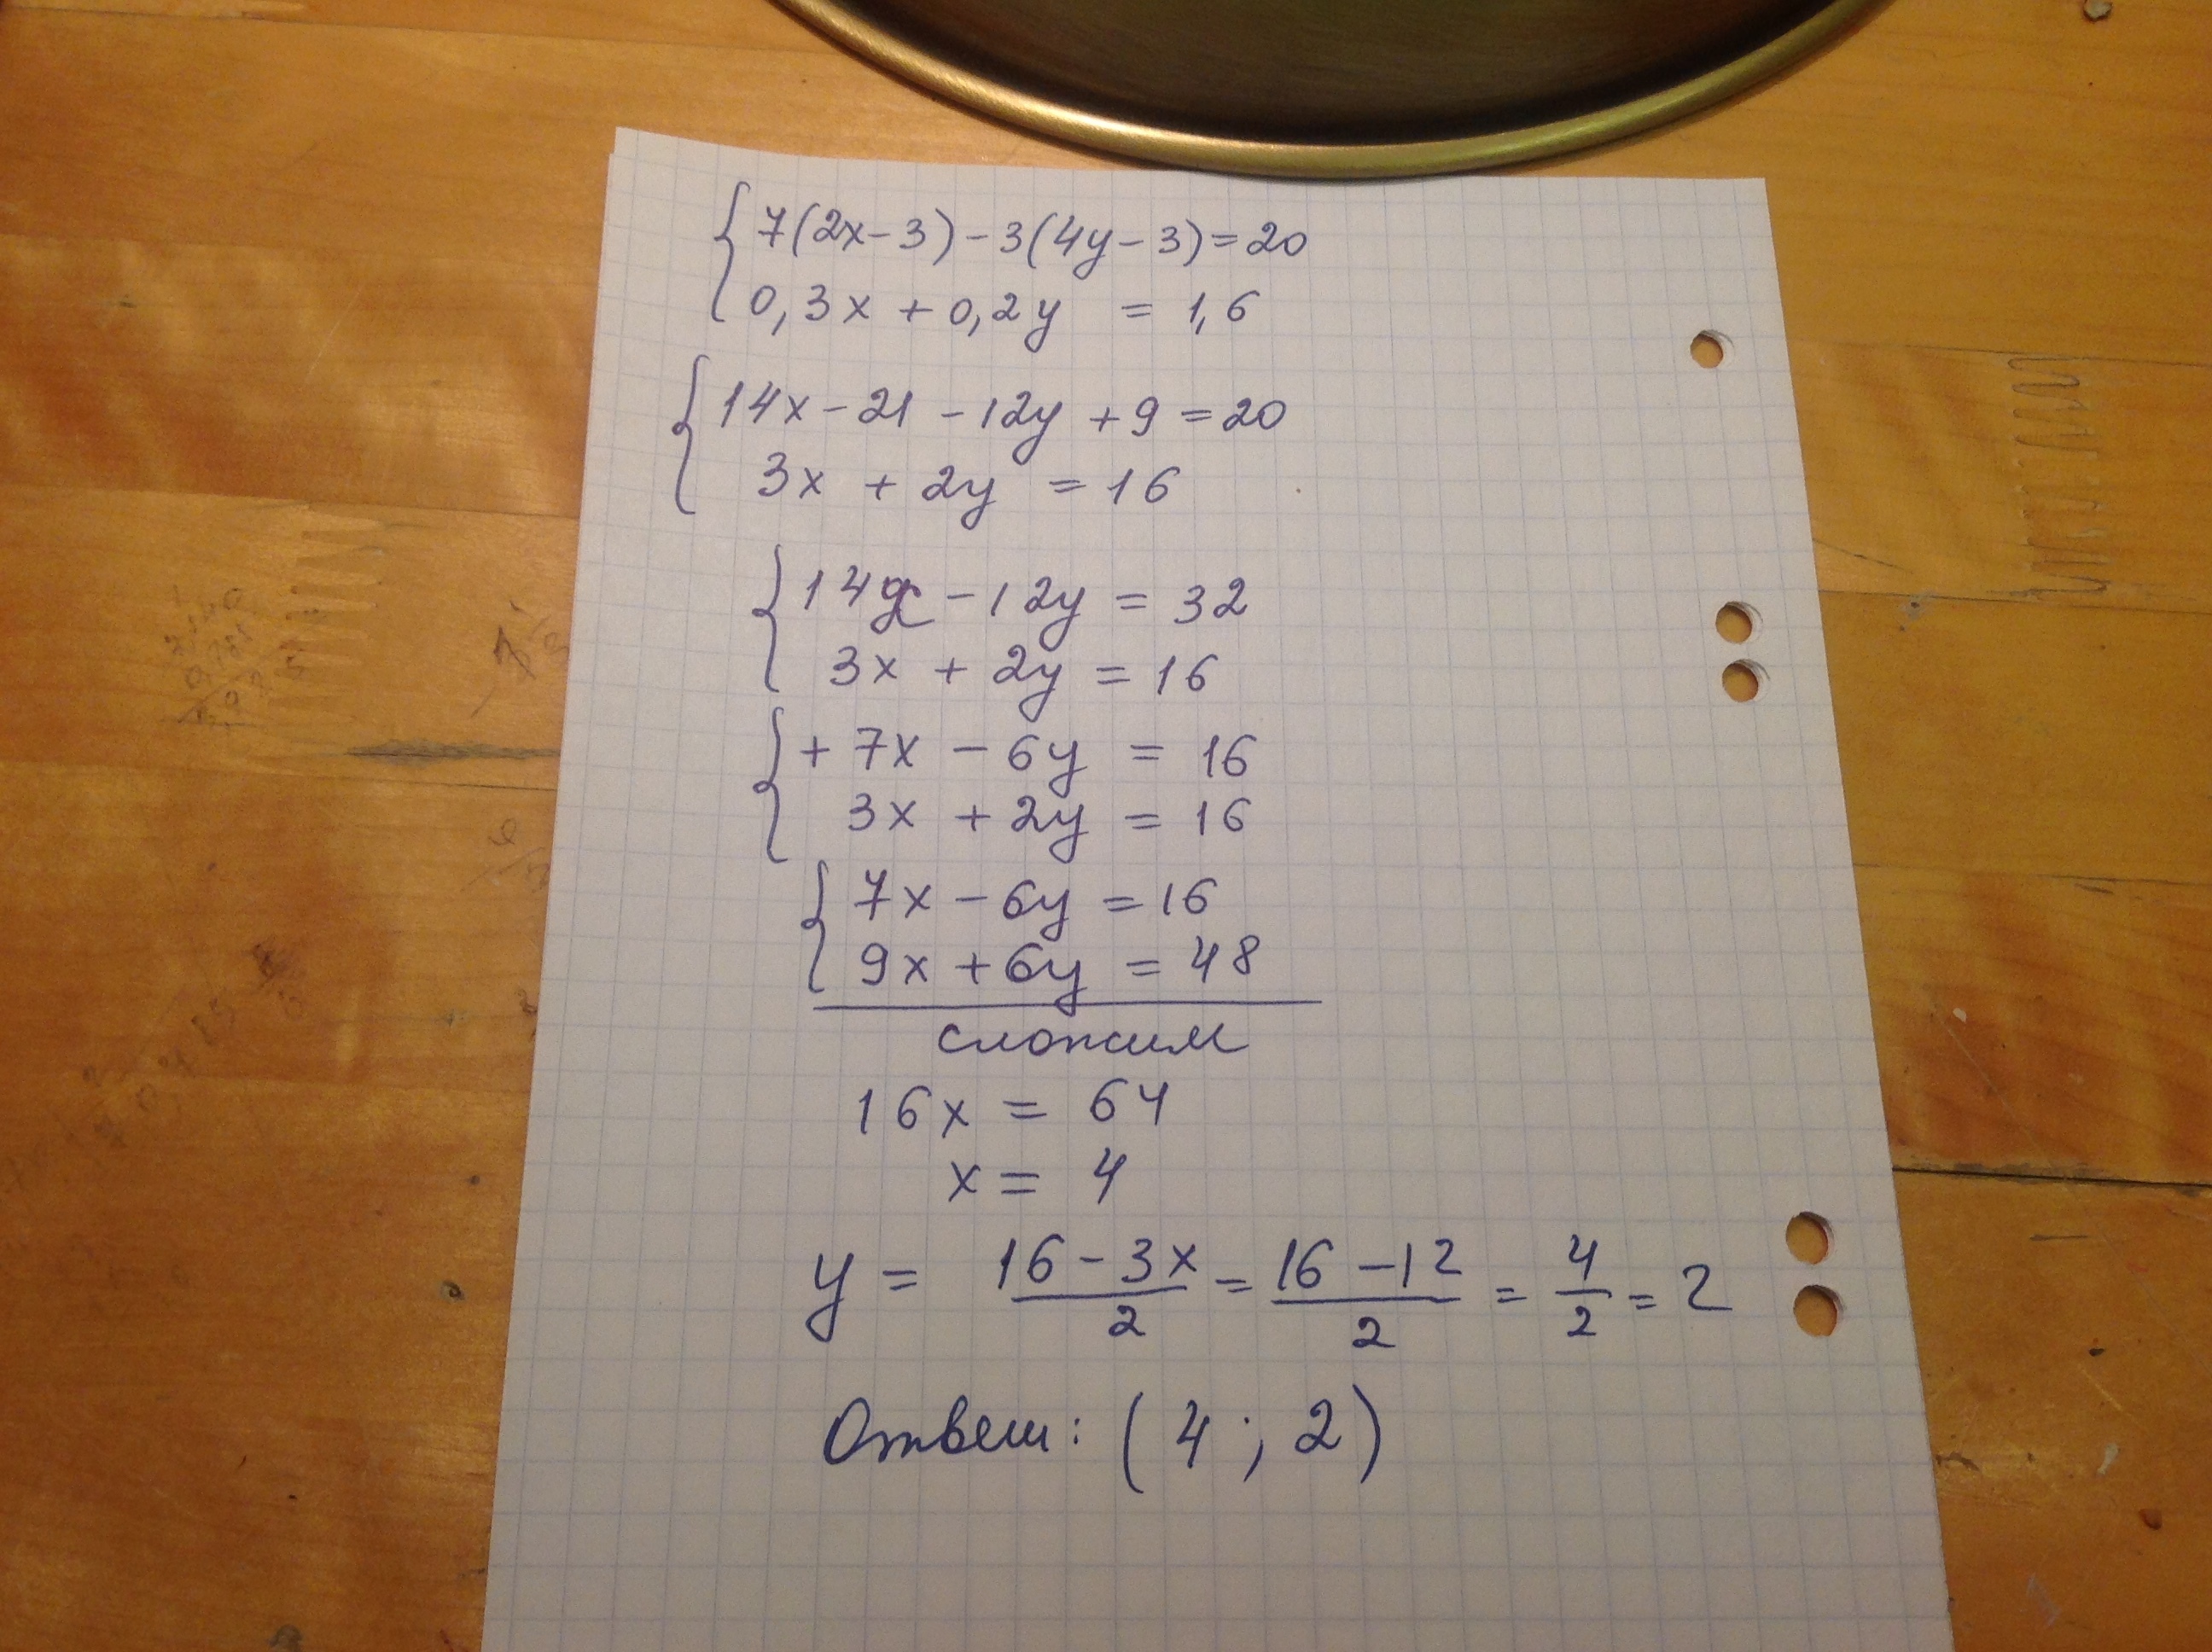 7(2x-3)-3(4y-3)=20
0,3x+0,2y = 1,6
14x-21-12y+9=20
3x+2y=16
14x-12y=32
3x+2y=16
+7x-6y=16
3x+2y=16
7x-6y=16
9x+6y=48
сложим
16x=64
x=4
y= (16-3x)/2 = (16-12)/2 = 4/2 = 2
Ответ: (4; 2)